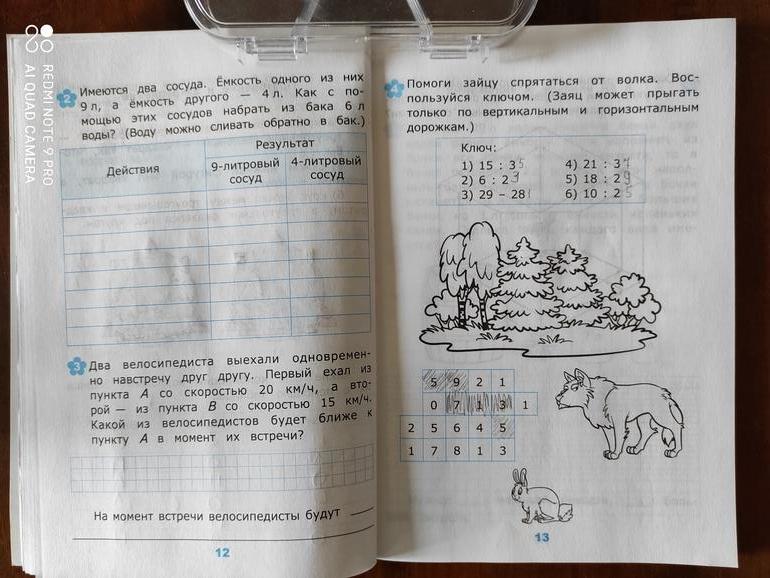 REDMI NOTE 9 PRO
AI QUAD CAMERA
2
Имеются два сосуда. Ёмкость одного из них
9 л, а ёмкость другого — 4 л. Как с по-
мощью этих сосудов набрать из бака 6 л
воды? (Воду можно сливать обратно в бак.)
Действия
Результат
9-литровый
сосуд
4-литровый
сосуд
3
Два велосипедиста выехали одновремен-
но навстречу друг другу. Первый ехал из
пункта А со скоростью 20 км/ч, а вто-
рой — из пункта В со скоростью 15 км/ч.
Какой из велосипедистов будет ближе к
пункту А в момент их встречи?
На момент встречи велосипедисты будут
12
4
Помоги зайцу спрятаться от волка. Вос-
пользуйся ключом. (Заяц может прыгать
только по вертикальным и горизонтальным
дорожкам.)
Ключ:
1) 15 : 3 5
2) 6 : 2 3
3) 29 – 28 1
4) 21 : 3 7
5) 18 : 2 9
6) 10 : 2 5
5 9 2 1
0 7 1 3 1
2 5 6 4 5
1 7 8 1 3
13